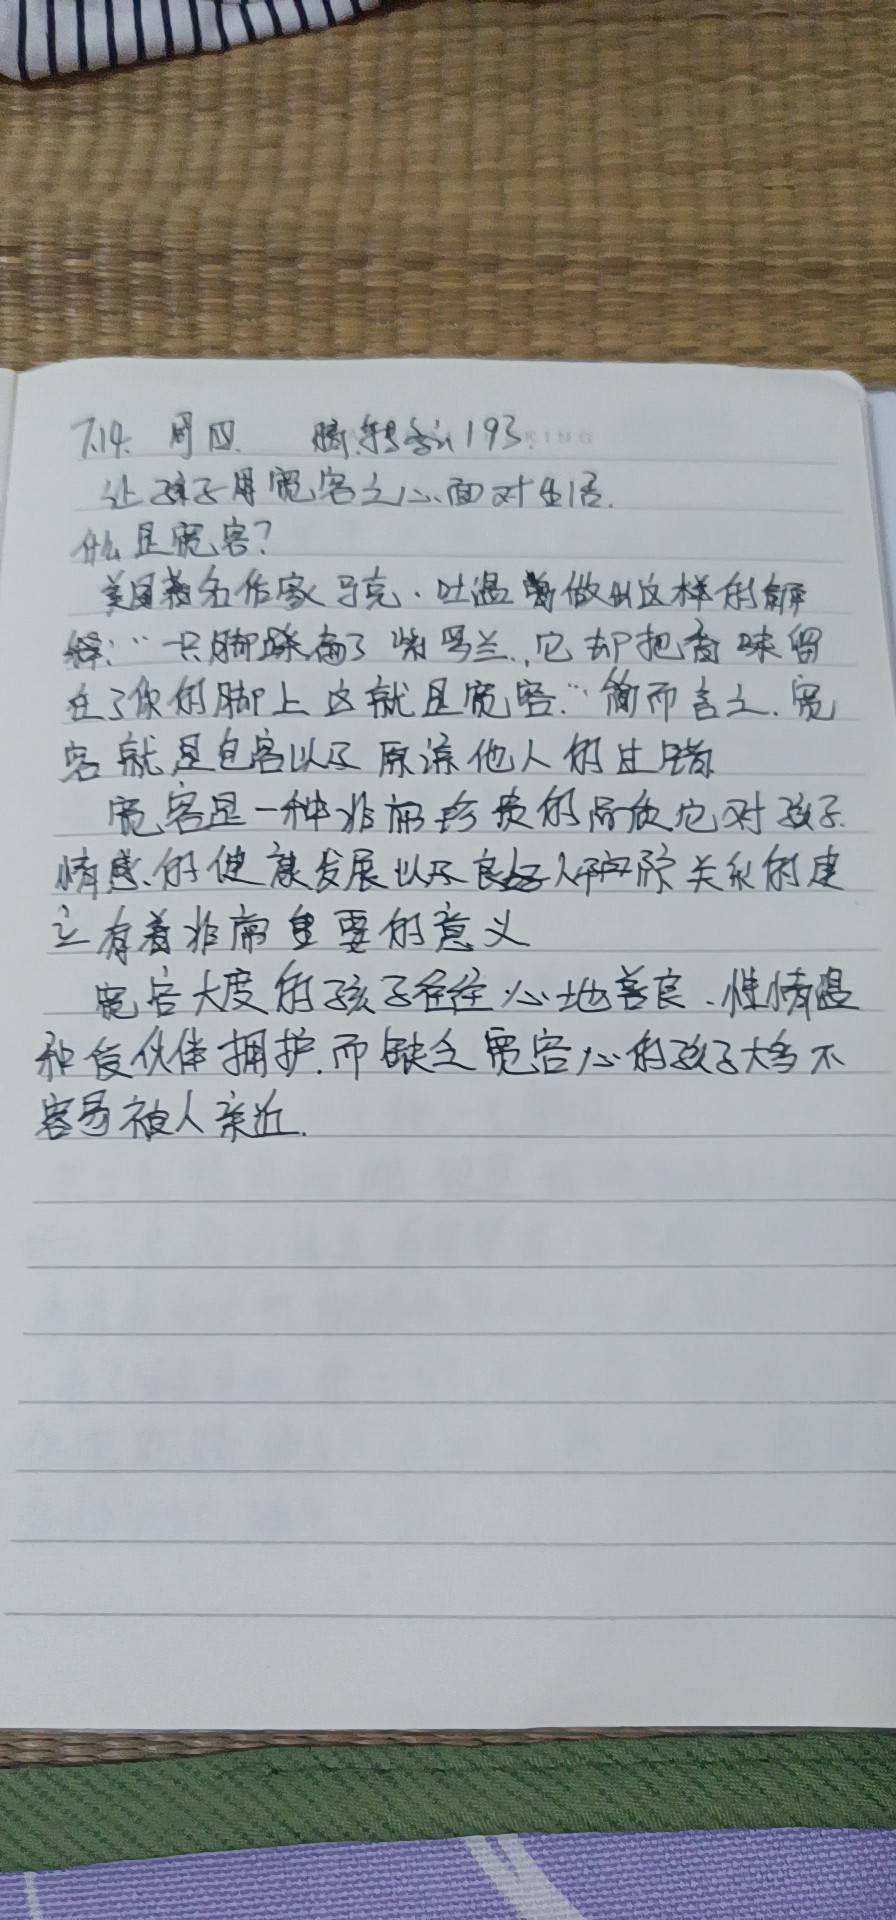 7.14. 周四. 193
让孩子用宽容之心面对生活.
什么是宽容?
美国著名作家马克·吐温曾做出这样的解
释:“一只脚踩扁了紫罗兰,它却把香味留
在了你的脚上这就是宽容.”简而言之.宽
容就是包容以及原谅他人的过错
宽容是一种非常珍贵的品质它对孩子
情感、的健康发展以及良好人际关系的建
立有着非常重要的意义
宽容大度的孩子往往心地善良、性情温
和受伙伴拥护.而缺乏宽容心的孩子大多不
容易被人亲近.